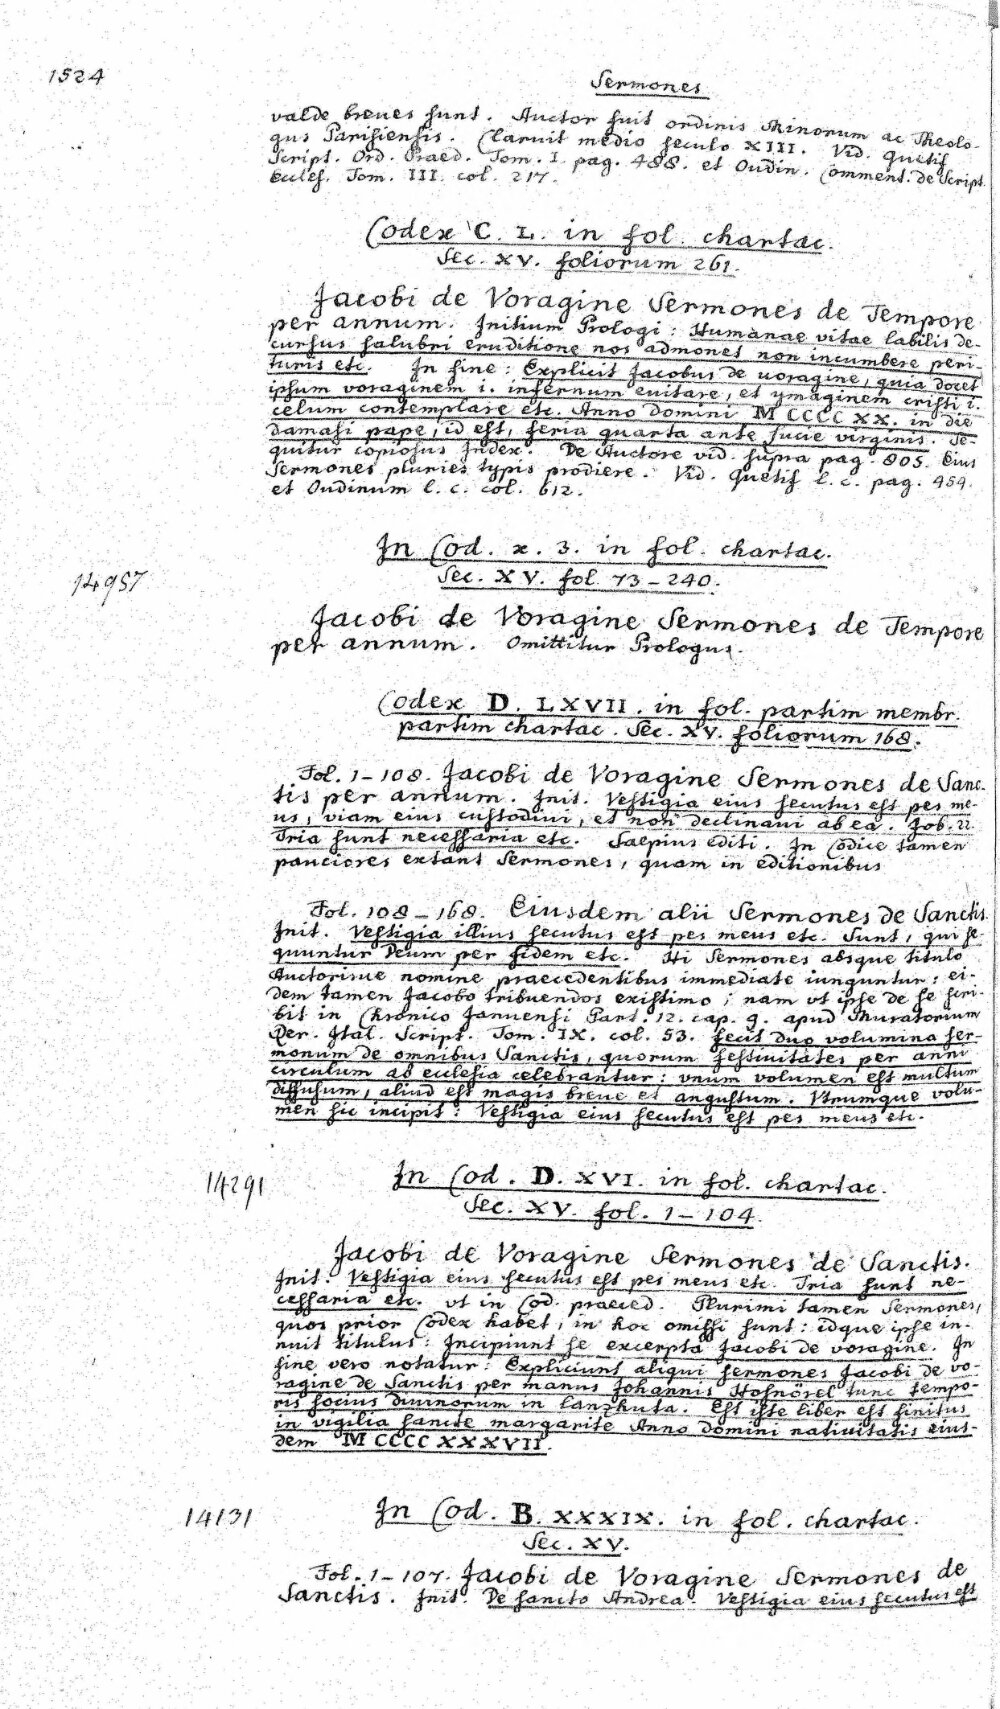 1524
Sermones
valde breues sunt. Auctor fuit ordinis Minorum ac Theolo-
gus Parisiensis. Claruit medio seculo XIII. Vid. Quetif
Script. Ord. Praed. Tom. I. pag. 488. et Oudin. Comment. de Script.
Eccles. Tom. III. col. 217.
Codex C. L. in fol. chartac.
Sec. XV. foliorum 261.
Jacobi de Voragine Sermones de Tempore
per annum. Initium Prologi: Humanae vitae labilis de-
cursus salubri eruditione nos admonet non incumbere peri-
turis etc. In fine: Explicit Jacobus de uoragine, quia docet
ipsum voraginem i. infernum euitare, et ymaginem cristi i.
celum contemplare etc. Anno domini MCCCCXX. in die
damasi pape, id est, feria quarta ante lucie virginis. Se-
quitur copiosus Index. De Auctore vid. supra pag. 805. Eius
Sermones pluries typis prodiere. Vid. Quetif l. c. pag. 459.
et Oudinum l. c. col. 612.
14957
In Cod. x. 3. in fol. chartac.
Sec. XV. fol. 73-240.
Jacobi de Voragine Sermones de Tempore
per annum. Omittitur Prologus.
Codex D. LXVII. in fol. partim membr.
partim chartac. Sec. XV. foliorum 168.
Fol. 1-108. Jacobi de Voragine Sermones de Sanc-
tis per annum. Init. Vestigia eius secutus est pes me-
us, viam eius custodiui, et non declinaui ab ea. Job. 22.
Tria sunt necessaria etc. Saepius editi. In Codice tamen
pauciores extant Sermones, quam in editionibus
Fol. 108-168. Eiusdem alii Sermones de Sanctis.
Init. Vestigia illius secutus est pes meus etc. Sunt, qui se-
quuntur Deum per fidem etc. Hi Sermones absque titulo
Auctorisue nomine praecedentibus immediate iunguntur: ei-
dem tamen Jacobo tribuendos existimo; nam vt ipse de se scri-
bit in Chronico Januensi Part. 12. cap. 9. apud Muratorium
Rer. Ital. Script. Tom. IX. col. 53. fecit duo volumina ser-
monum de omnibus Sanctis, quorum festiuitates per anni
circulum ab ecclesia celebrantur: vnum volumen est multum
diffusum, aliud est magis breue et angustum. Vtrumque volu-
men sic incipit: Vestigia eius secutus est pes meus etc.
14291
In Cod. D. XVI. in fol. chartac.
Sec. XV. fol. 1-104.
Jacobi de Voragine Sermones de Sanctis.
Init. Vestigia eius secutus est pes meus etc. Tria sunt ne-
cessaria etc. vt in Cod. praeced. Plurimi tamen Sermones,
quos prior Codex habet, in hoc omissi sunt: idque ipse in-
nuit titulus: Incipiunt se excerpta Jacobi de voragine. In
fine vero notatur: Expliciunt aliqui sermones Jacobi de vo-
ragine de Sanctis per manus Johannis Hofnörel tunc tempo-
ris socius diuinorum in lanzhuta. Est iste liber est finitus
in vigilia sancte margarite Anno domini natiuitatis eius-
dem MCCCCXXXVII.
14131
In Cod. B. XXXIX. in fol. chartac.
Sec. XV.
Fol. 1-107. Jacobi de Voragine Sermones de
Sanctis. Init. De sancto Andrea. Vestigia eius secutus est